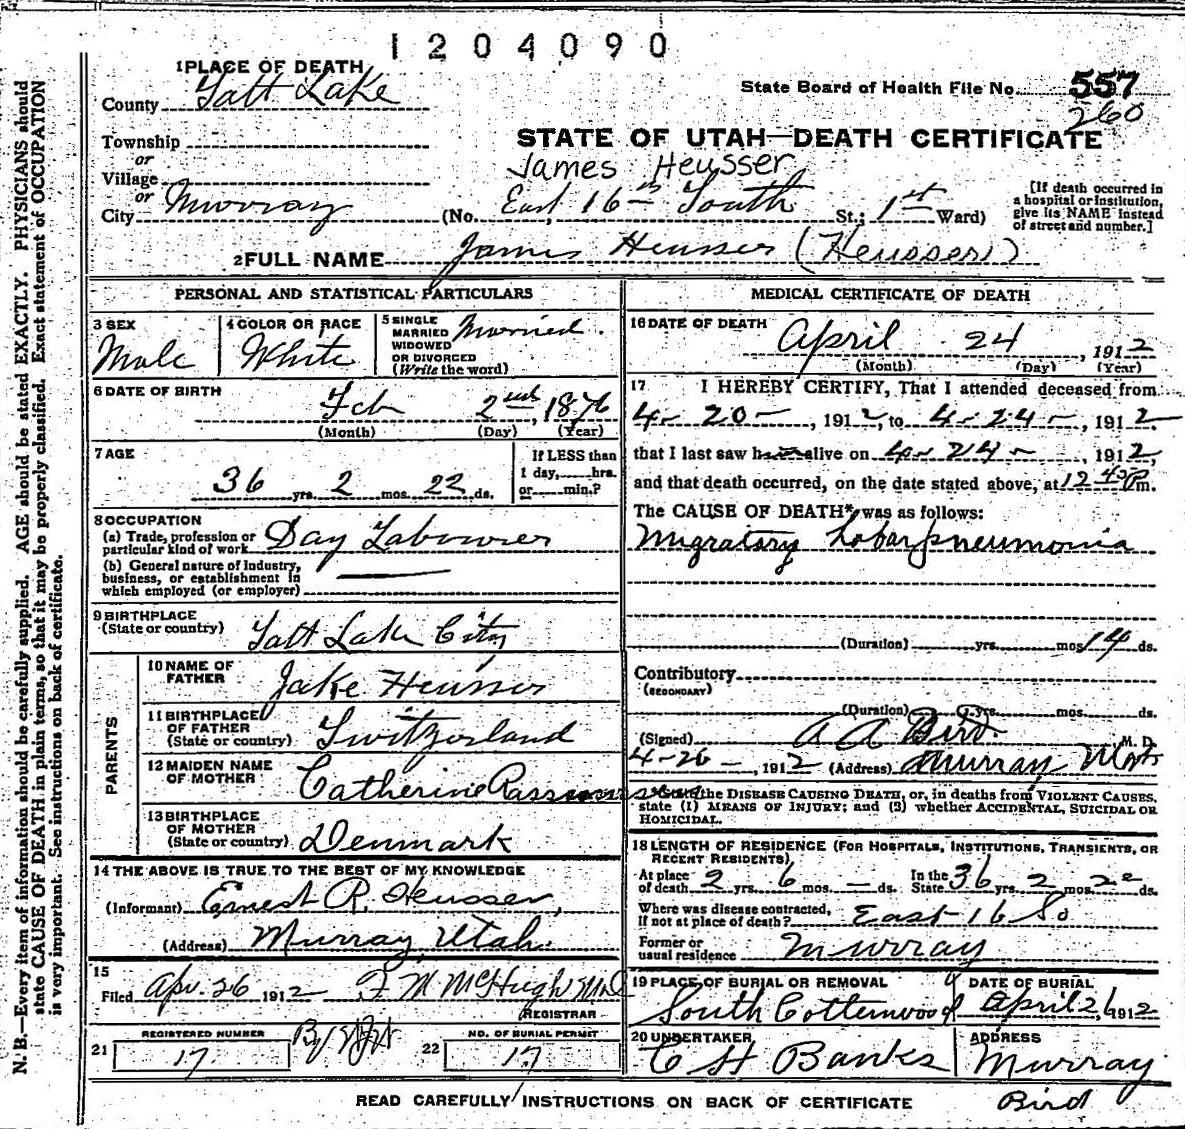 1204090
1 PLACE OF DEATH
County Salt Lake
State Board of Health File No. 557
260
STATE OF UTAH—DEATH CERTIFICATE
Township
or
Village
or
City Murray
James Heusser
(No. East 16th South St.; 1st Ward)
[If death occurred in a hospital or institution, give its NAME instead of street and number.]
2 FULL NAME James Heusser (Heusser)
PERSONAL AND STATISTICAL PARTICULARS
3 SEX
Male
4 COLOR OR RACE
White
5 SINGLE
MARRIED
WIDOWED
OR DIVORCED
(Write the word)
Married.
6 DATE OF BIRTH
Feb 2nd, 1876
(Month) (Day) (Year)
7 AGE
36 yrs. 2 mos. 22 ds.
If LESS than
1 day, hrs.
or min.?
8 OCCUPATION
(a) Trade, profession or
particular kind of work Day Labourer
(b) General nature of industry,
business, or establishment in
which employed (or employer)
9 BIRTHPLACE
(State or country) Salt Lake City
PARENTS
10 NAME OF
FATHER Jake Heusser
11 BIRTHPLACE
OF FATHER
(State or country) Switzerland
12 MAIDEN NAME
OF MOTHER Catherine Rassmussen
13 BIRTHPLACE
OF MOTHER
(State or country) Denmark
14 THE ABOVE IS TRUE TO THE BEST OF MY KNOWLEDGE
(Informant) Ernest R. Heusser,
(Address) Murray, Utah.
15
Filed Apr. 26 1912 F M McHugh M D
REGISTRAR
REGISTERED NUMBER
21 17
By
NO. OF BURIAL PERMIT
22 17
MEDICAL CERTIFICATE OF DEATH
16 DATE OF DEATH
April 24, 1912
(Month) (Day) (Year)
17 I HEREBY CERTIFY, That I attended deceased from
4-20-, 1912, to 4-24-, 1912.
that I last saw him alive on 4-24-, 1912,
and that death occurred, on the date stated above, at 12 45 P m.
The CAUSE OF DEATH* was as follows:
Migratory Lobar pneumonia
(Duration) yrs. mos 14 ds.
Contributory
(SECONDARY)
(Duration) yrs. mos. ds.
(Signed) A A Bird M. D.
4-26-, 1912 (Address) Murray Utah
the DISEASE CAUSING DEATH, or, in deaths from VIOLENT CAUSES,
state (1) MEANS OF INJURY; and (2) whether ACCIDENTAL, SUICIDAL OR
HOMICIDAL.
18 LENGTH OF RESIDENCE (FOR HOSPITALS, INSTITUTIONS, TRANSIENTS, OR
RECENT RESIDENTS).
At place
of death 2 yrs. 6 mos. — ds.
In the
State 36 yrs. 2 mos. 22 ds.
Where was disease contracted,
if not at place of death? East 16 So
Former or
usual residence Murray
19 PLACE OF BURIAL OR REMOVAL
South Cottonwood
DATE OF BURIAL
April 26, 1912
20 UNDERTAKER
C H Banks
ADDRESS
Murray
READ CAREFULLY INSTRUCTIONS ON BACK OF CERTIFICATE
Bird
N. B.—Every item of information should be carefully supplied. AGE should be stated EXACTLY. PHYSICIANS should
state CAUSE OF DEATH in plain terms, so that it may be properly classified. Exact statement of OCCUPATION
is very important. See instructions on back of certificate.